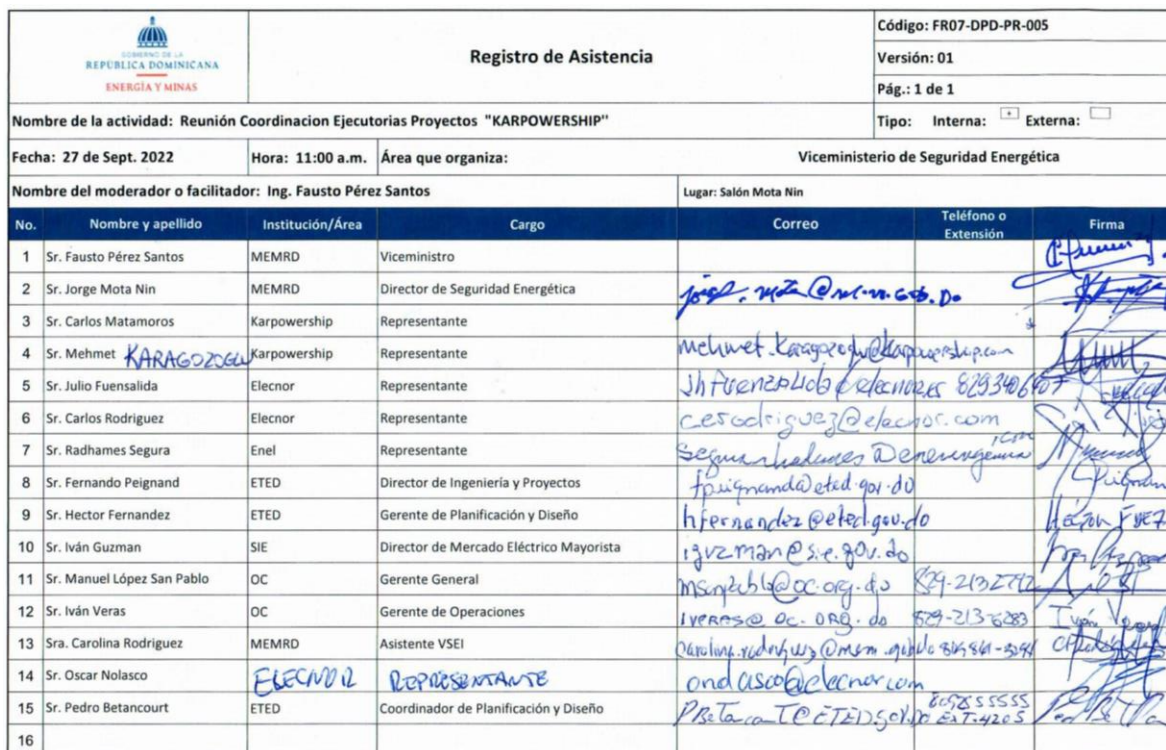 GOBIERNO DE LA
REPÚBLICA DOMINICANA
ENERGÍA Y MINAS
Registro de Asistencia
Código: FR07-DPD-PR-005
Versión: 01
Pág.: 1 de 1
Nombre de la actividad: Reunión Coordinacion Ejecutorias Proyectos "KARPOWERSHIP"
Tipo: Interna: Externa:
Fecha: 27 de Sept. 2022 Hora: 11:00 a.m. Área que organiza: Viceministerio de Seguridad Energética
Nombre del moderador o facilitador: Ing. Fausto Pérez Santos Lugar: Salón Mota Nin
No. Nombre y apellido Institución/Área Cargo Correo Teléfono o Extensión Firma
1 Sr. Fausto Pérez Santos MEMRD Viceministro
2 Sr. Jorge Mota Nin MEMRD Director de Seguridad Energética
3 Sr. Carlos Matamoros Karpowership Representante
4 Sr. Mehmet KARAGOZOGLU Karpowership Representante
5 Sr. Julio Fuensalida Elecnor Representante
6 Sr. Carlos Rodriguez Elecnor Representante cesodriguez@elecnor.com
7 Sr. Radhames Segura Enel Representante
8 Sr. Fernando Peignand ETED Director de Ingeniería y Proyectos
9 Sr. Hector Fernandez ETED Gerente de Planificación y Diseño hfernandez@eted.gov.do
10 Sr. Iván Guzman SIE Director de Mercado Eléctrico Mayorista iguzman@sie.gov.do
11 Sr. Manuel López San Pablo OC Gerente General
12 Sr. Iván Veras OC Gerente de Operaciones IVERAS@OC.ORG.do 829-213-6283
13 Sra. Carolina Rodriguez MEMRD Asistente VSEI
14 Sr. Oscar Nolasco ELECNOR REPRESENTANTE
15 Sr. Pedro Betancourt ETED Coordinador de Planificación y Diseño EXT.4205
16